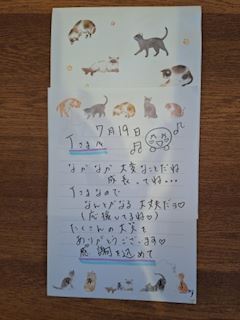 7月19日
Tさまへ
なかなか大変なことだね
成長してね...
Tさまなので
なんとかなる 大丈夫だヨ♡
(応援してるね♡)
たくさんの大笑を
ありがとうございます♡
感謝を込めて